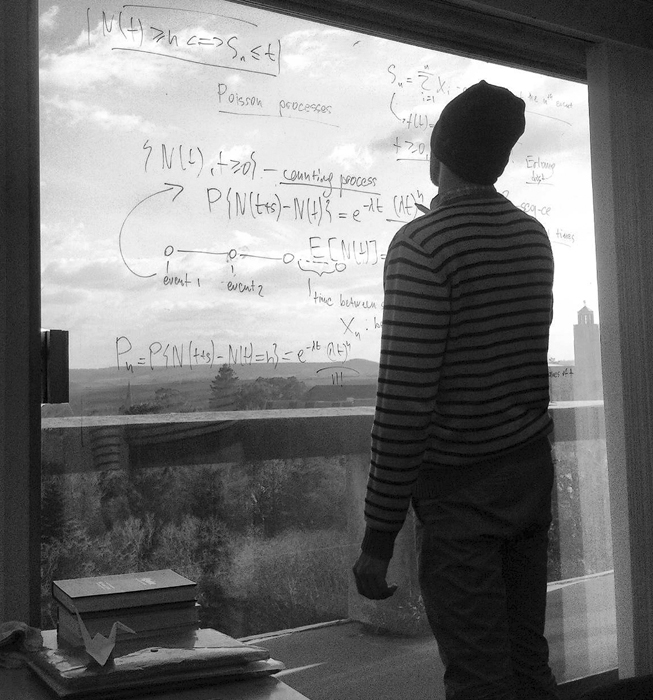 {N(t) ≥ n <=> Sₙ ≤ t}
Poisson processes
Sₙ = Σⁿᵢ₌₁ Xᵢ -
f(t)=
t≥0,
{N(t), t≥0} - counting process
P{N(t+s)-N(t)} = e^-λt (λt)ⁿ
event 1
event 2
E[N(t)] =
time between
Xₙ.
times
Pₙ = P{N(t+s)-N(t)=n} = e^-λt (λt)ⁿ
n!